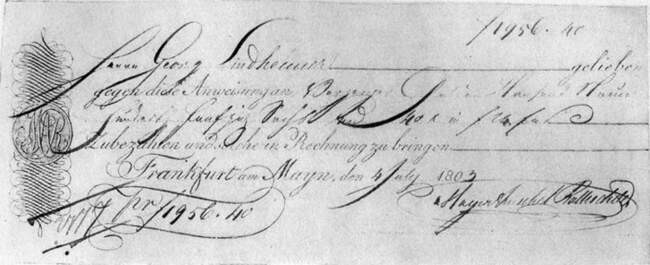 f1956.40
Herrn Georg Lindheimer gelieben
gegen diese Anweisung an
Hundert Fünfzig Sechs und 40 x in
Zu bezahlen und solche in Rechnung zu bringen
Frankfurt am Mayn, den 4 July 1803
Pr f1956.40 Mayer Amschel Rothschild